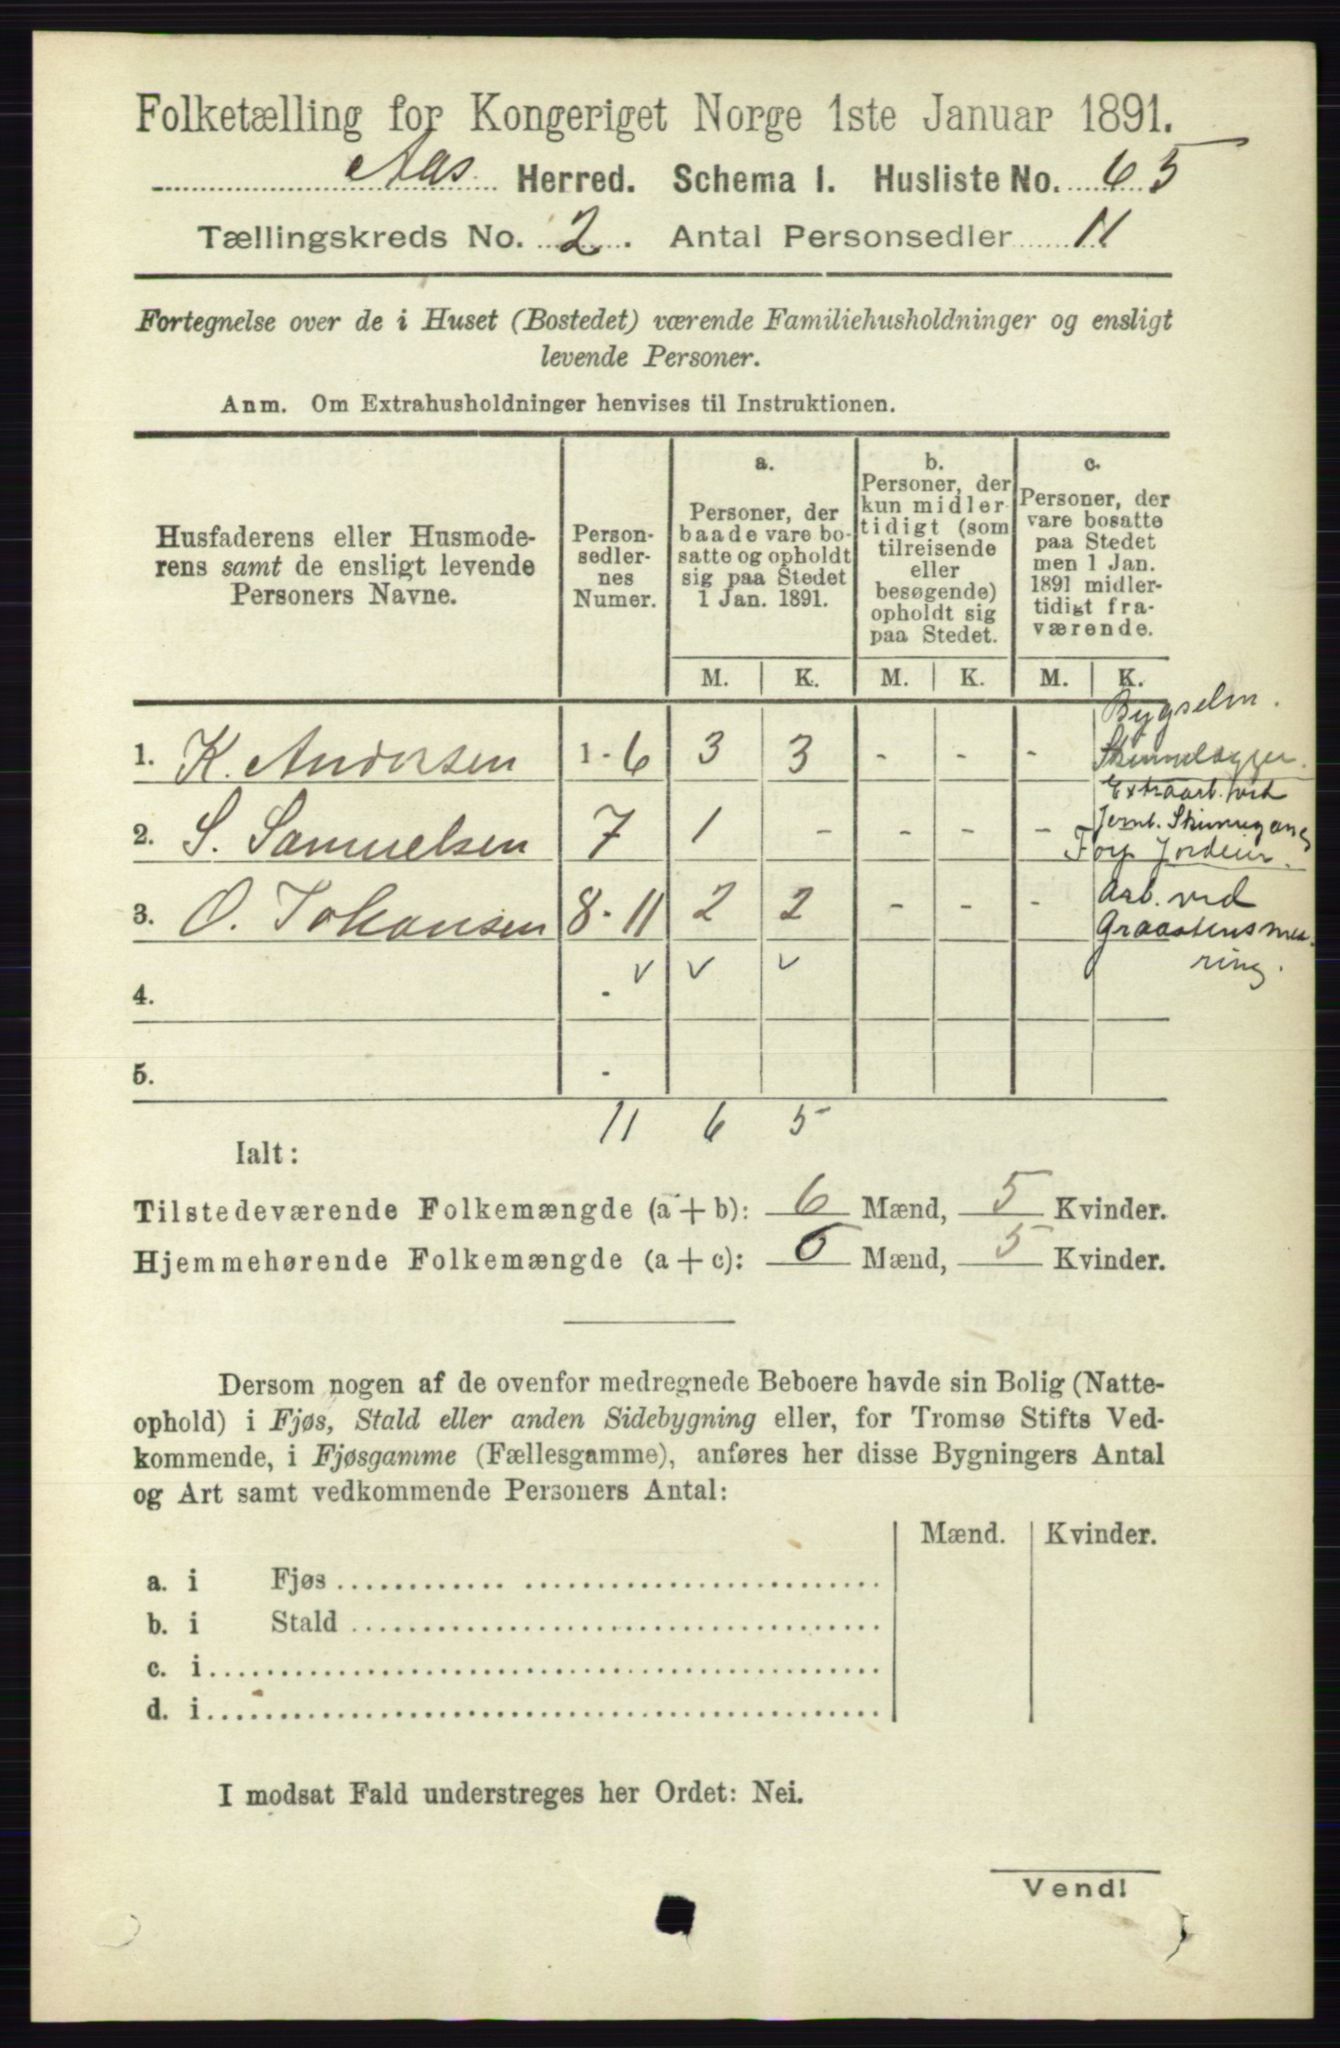 Folketælling for Kongeriget Norge 1ste Januar 1891.
Aas Herred. Schema I. Husliste No. 65
Tællingskreds No. 2. Antal Personsedler 11
Fortegnelse over de i Huset (Bostedet) værende Familiehusholdninger og ensligt
levende Personer.
Anm. Om Extrahusholdninger henvises til Instruktionen.
Husfaderens eller Husmode-
rens samt de ensligt levende
Personers Navne.
Person-
sedler-
nes
Numer.
a.
Personer, der
baade vare bo-
satte og opholdt
sig paa Stedet
1 Jan. 1891.
b.
Personer, der
kun midler-
tidigt (som
tilreisende
eller
besøgende)
opholdt sig
paa Stedet.
c.
Personer, der
vare bosatte
paa Stedet
men 1 Jan.
1891 midler-
tidigt fra-
værende.
M. K. M. K. M. K.
Bygselm.
1. K. Andersen 1-6 3 3 - - -
Skinnelægger.
Extraarb. ved
2. S. Samuelsen 7 1 - - - -
Jernb. Skinnegang
Jordeier.
3. O. Johansen 8-11 2 2 - - -
Arb. ved
Graastensmu-
ring.
v v v
4. -
5. -
11 6 5
Ialt:
Tilstedeværende Folkemængde (a + b): 6 Mænd, 5 Kvinder.
Hjemmehørende Folkemængde (a + c): 6 Mænd, 5 Kvinder.
Dersom nogen af de ovenfor medregnede Beboere havde sin Bolig (Natte-
ophold) i Fjøs, Stald eller anden Sidebygning eller, for Tromsø Stifts Ved-
kommende, i Fjøsgamme (Fællesgamme), anføres her disse Bygningers Antal
og Art samt vedkommende Personers Antal:
Mænd. Kvinder.
a. i Fjøs
b. i Stald
c. i
d. i
I modsat Fald understreges her Ordet: Nei.
Vend!